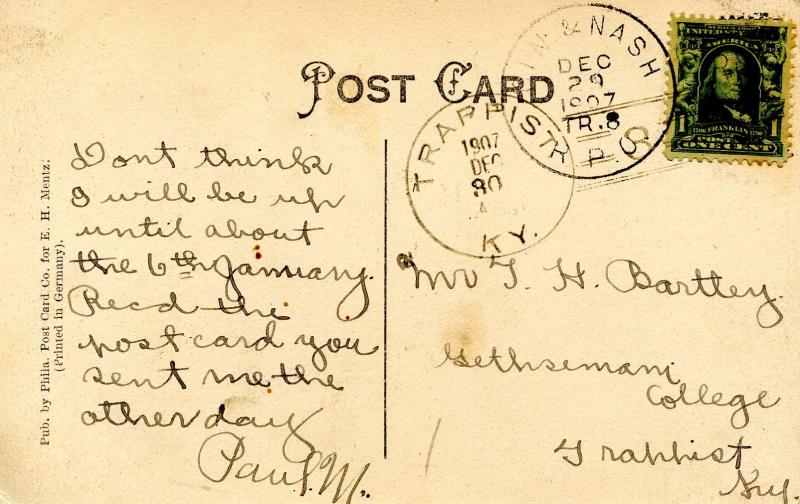 POST CARD
Dont think
I will be up
until about
the 6th January.
Recd the
post card you
sent me the
other day
Paul. M.
Pub. by Phila. Post Card Co. for E. H. Mentz.
(Printed in Germany).
TRAPPIST
1907
DEC
30
KY.
& NASH
DEC
29
1907
TR. 8
R. P. O.
SERIES 1902
UNITED STATES OF
AMERICA
FRANKLIN
POSTAGE
1 ONE CENT 1
Mr T. H. Bartley.
Gethsemani
College
Trappist
Ky.